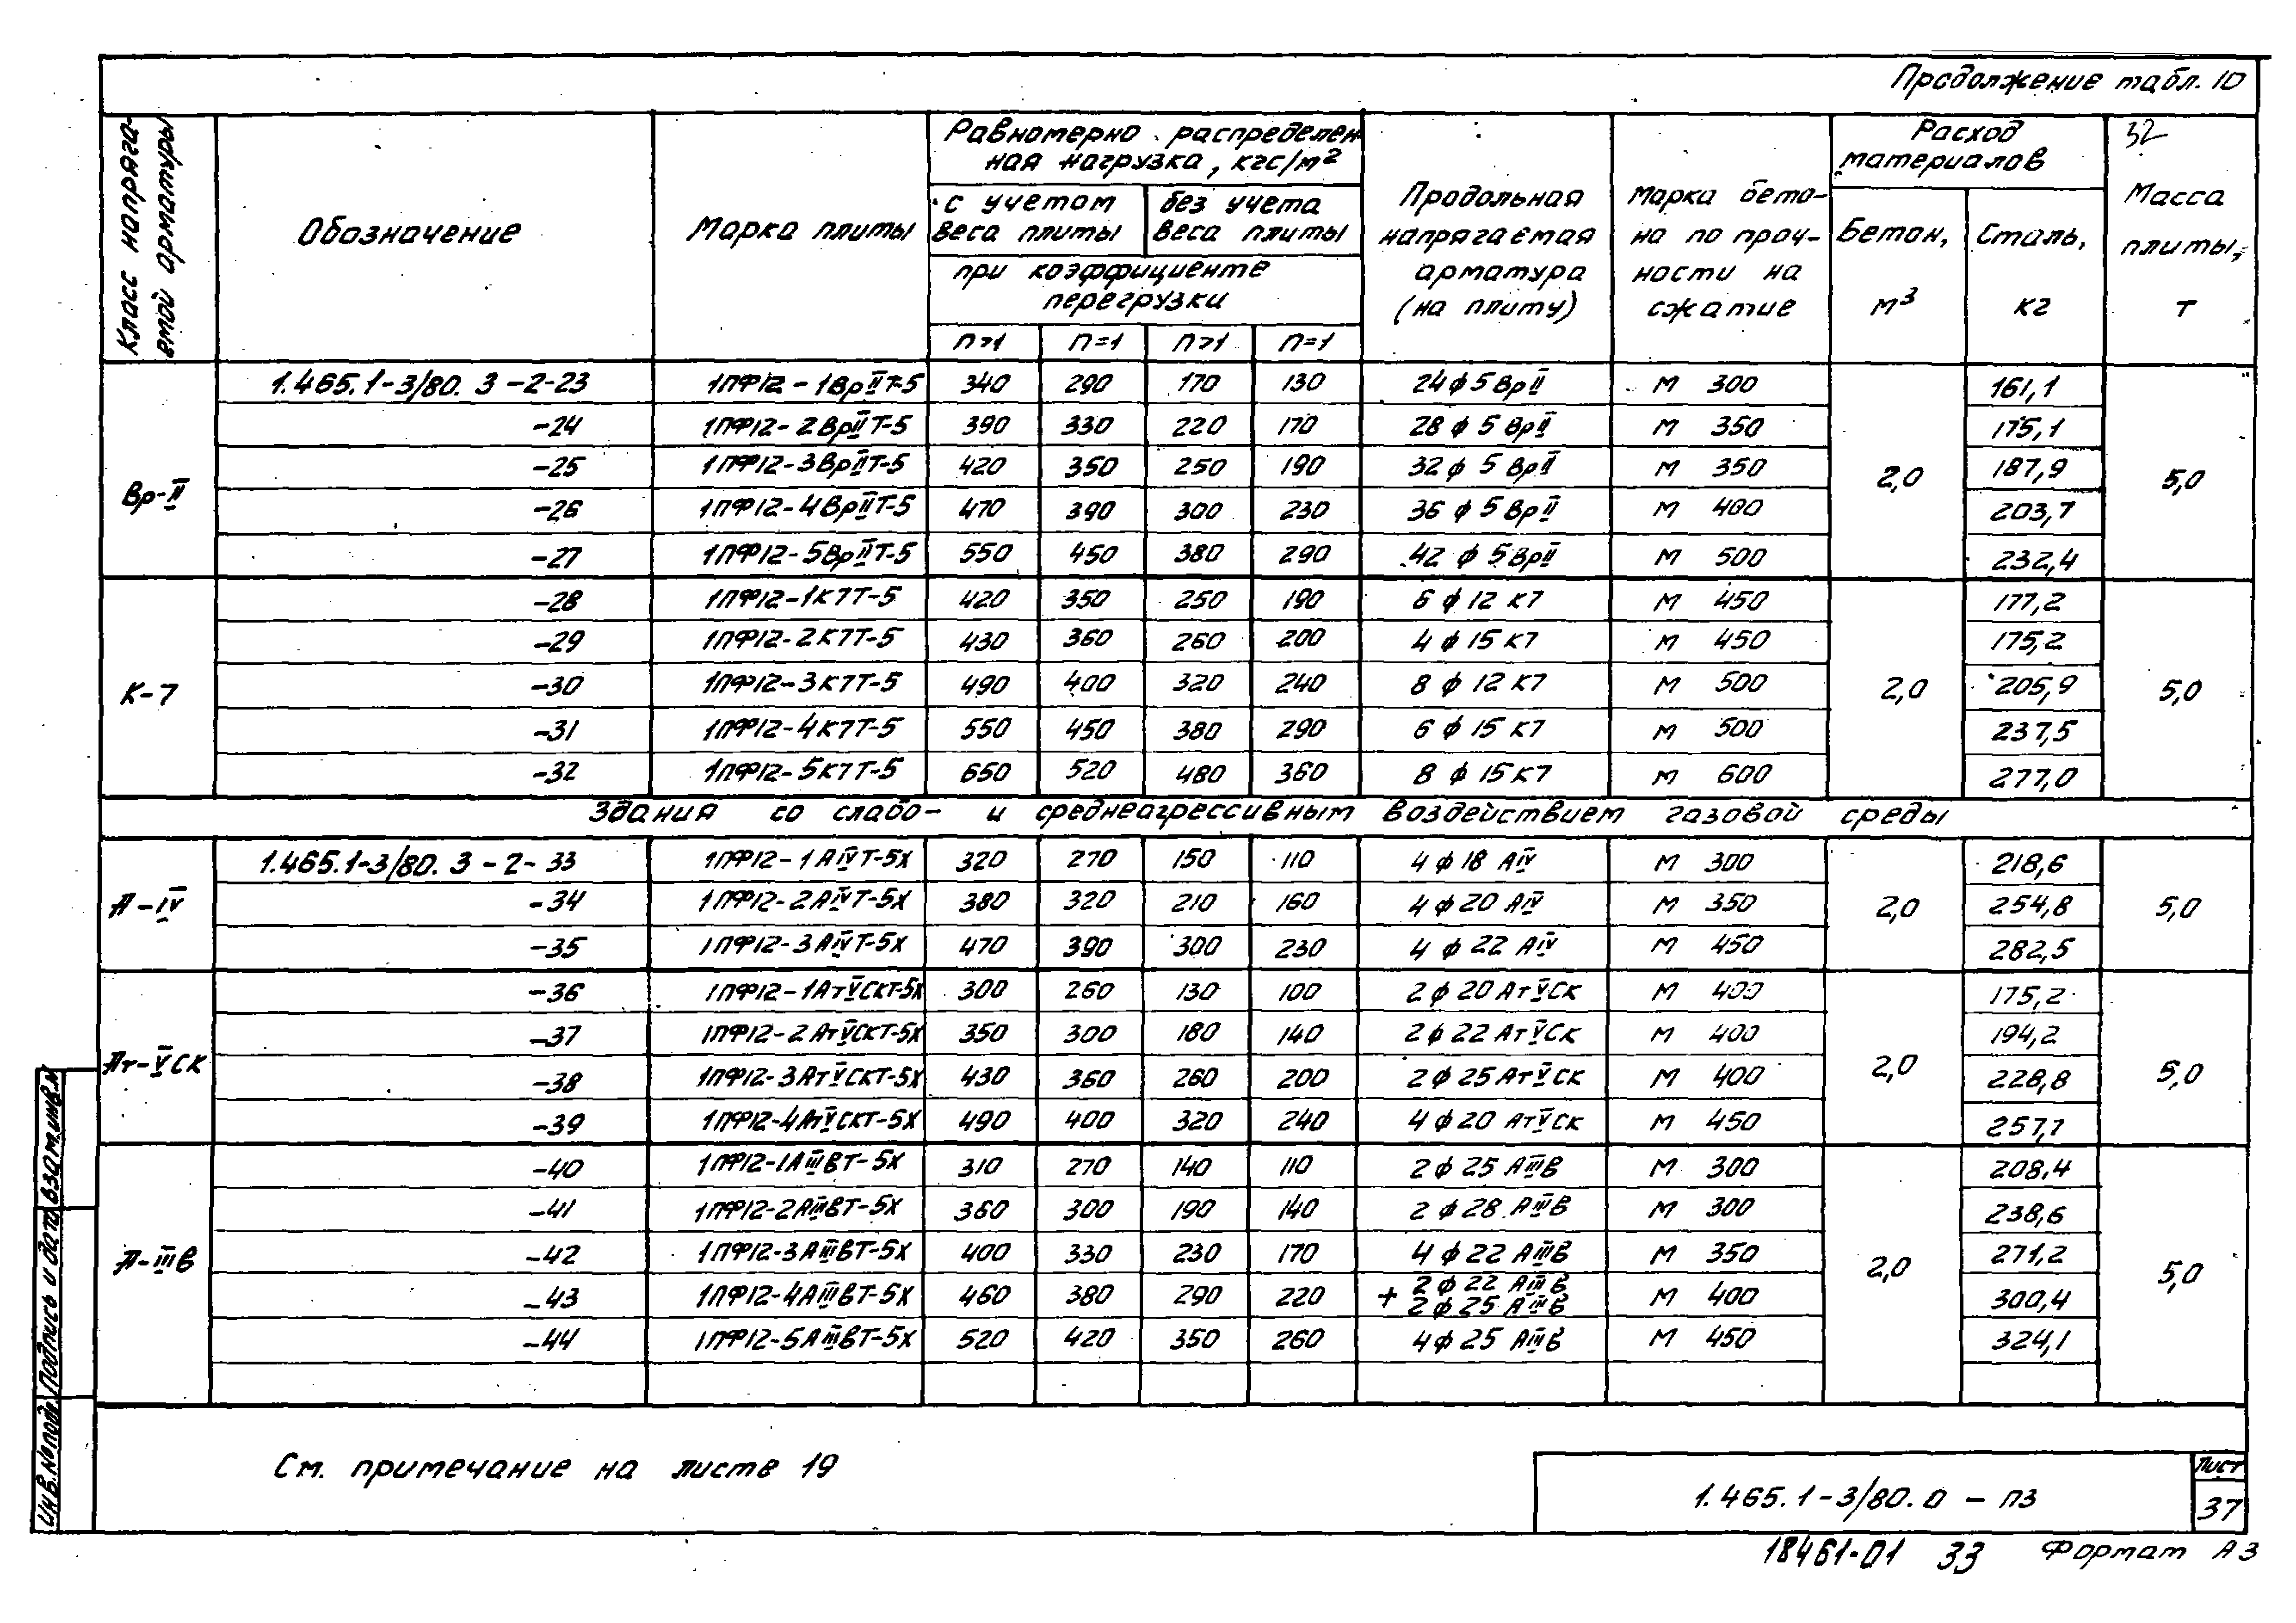 Продолжение табл. 10
32
Класс напряга-
емой арматуры
Обозначение
Марка плиты
Равномерно распределен
ная нагрузка, кгс/м²
с учетом
веса плиты
без учета
веса плиты
при коэффициенте
перегрузки
n>1 n=1 n>1 n=1
Продольная
напрягаемая
арматура
(на плиту)
Марка бето-
на по проч-
ности на
сжатие
Расход
материалов
Бетон,
м³
Сталь,
кг
Масса
плиты,
т
Вр-II
1.465.1-3/80. 3 -2-23 1ПФ12-1ВрIIТ-5 340 290 170 130 24ф5ВрII М 300 161,1
-24 1ПФ12-2ВрIIТ-5 390 330 220 170 28ф5ВрII М 350 175,1
-25 1ПФ12-3ВрIIТ-5 420 350 250 190 32ф5ВрII М 350 187,9
2,0 5,0
-26 1ПФ12-4ВрIIТ-5 470 390 300 230 36ф5ВрII М 400 203,7
-27 1ПФ12-5ВрIIТ-5 550 450 380 290 42ф5ВрII М 500 232,4
К-7
-28 1ПФ12-1К7Т-5 420 350 250 190 6ф12К7 М 450 177,2
-29 1ПФ12-2К7Т-5 430 360 260 200 4ф15К7 М 450 175,2
-30 1ПФ12-3К7Т-5 490 400 320 240 8ф12К7 М 500 2,0 205,9 5,0
-31 1ПФ12-4К7Т-5 550 450 380 290 6ф15К7 М 500 237,5
-32 1ПФ12-5К7Т-5 650 520 480 360 8ф15К7 М 600 277,0
Здания со слабо- и среднеагрессивным воздействием газовой среды
А-IV
1.465.1-3/80. 3 -2-33 1ПФ12-1АIVТ-5Х 320 270 150 110 4ф18АIV М 300 218,6
-34 1ПФ12-2АIVТ-5Х 380 320 210 160 4ф20АIV М 350 2,0 254,8 5,0
-35 1ПФ12-3АIVТ-5Х 470 390 300 230 4ф22АIV М 450 282,5
Ат-VСК
-36 1ПФ12-1АтVСКТ-5Х 300 260 130 100 2ф20АтVСК М 400 175,2
-37 1ПФ12-2АтVСКТ-5Х 350 300 180 140 2ф22АтVСК М 400 194,2
2,0 5,0
-38 1ПФ12-3АтVСКТ-5Х 430 360 260 200 2ф25АтVСК М 400 228,8
-39 1ПФ12-4АтVСКТ-5Х 490 400 320 240 4ф20АтVСК М 450 257,1
А-IIIв
-40 1ПФ12-1АIIIвТ-5Х 310 270 140 110 2ф25АIIIв М 300 208,4
-41 1ПФ12-2АIIIвТ-5Х 360 300 190 140 2ф28АIIIв М 300 238,6
-42 1ПФ12-3АIIIвТ-5Х 400 330 230 170 4ф22АIIIв М 350 2,0 271,2 5,0
-43 1ПФ12-4АIIIвТ-5Х 460 380 290 220 2ф22АIIIв
+ 2ф25АIIIв М 400 300,4
-44 1ПФ12-5АIIIвТ-5Х 520 420 350 260 4ф25АIIIв М 450 324,1
См. примечание на листе 19
1.465.1-3/80.0 - ПЗ
Лист
37
Инв.№ подл. Подпись и дата Взам.инв.№
18461-01 33 Формат А3